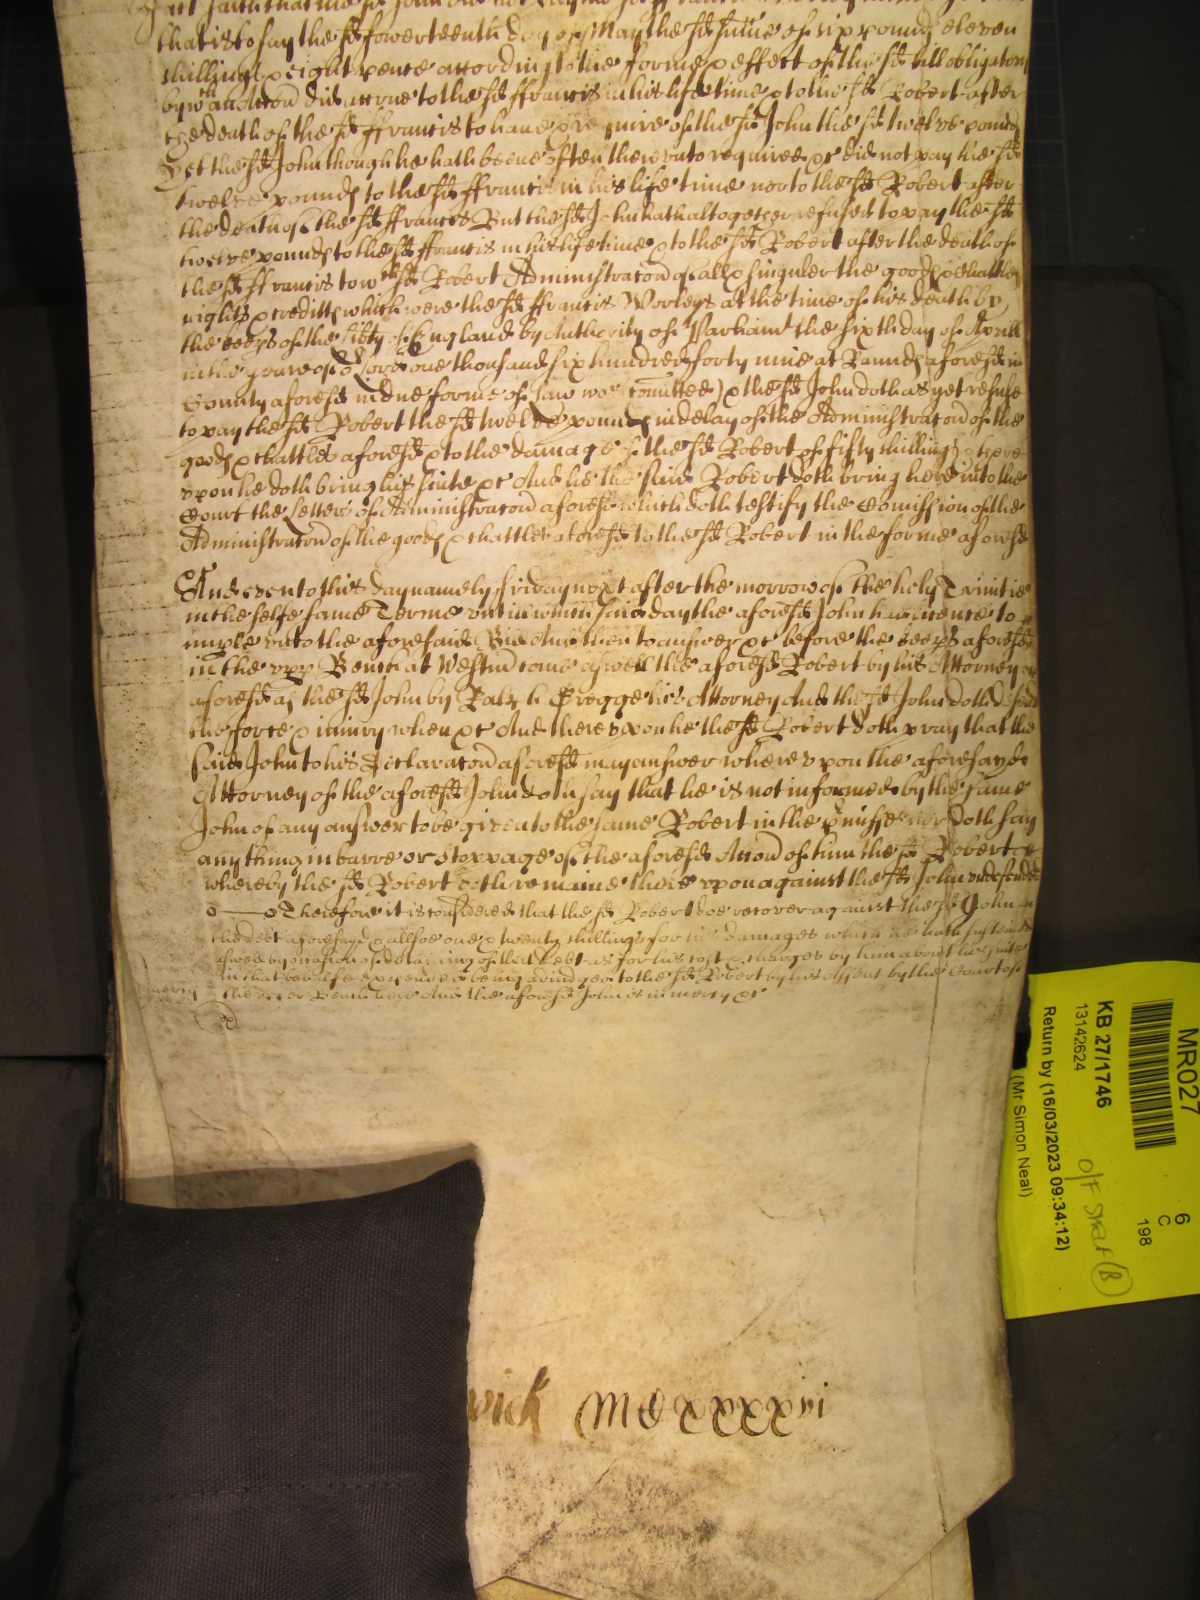 that is to say the sd fowerteenth day of May the sd sume of six pounds eleven
shillings & eight pence according to the forme & effect of the sd bill obligatory
by wch an Accon did accrue to the sd ffrancis in his life time & to the sd Robert after
the death of the sd ffrancis to have & require of the sd John the sd twelve pounds
Yet the sd John though he hath beene often thereunto required &c did not pay the sd
twelve pounds to the sd ffrancis in his life time nor to the sd Robert after
the death of the sd ffrancis But the sd John hath altogether refused to pay the sd
twelve pounds to the sd ffrancis in his life time & to the sd Robert after the death of
the sd ffrancis to wch sd Robert Administracon of all & singuler the goods & chattles
rights & creditts which were the sd ffrancis Worleys at the time of his death by
the keeps of the libty of England by Authority of Parliamt the sixth day of Aprill
in the yeare of or Lord one thousand six hundred forty nine at aforesd in
County aforesd in due forme of law was comitted) & the sd John doth as yet refuse
to pay the sd Robert the sd twelve pounds in delay of the Administracon of the
goods & chattles aforesd & to the damage of the sd Robert of fifty shillings & there
upon he doth bring his suite &c And he the said Robert doth bring here into the
Court the letters of Administracon aforesd which doth testify the Comission of the
Administracon of the goods & chattles aforesd to the sd Robert in the forme aforesd
And even to this day namely friday next after the morrow of the holy Trinitie
in the selfe same Terme untill which said day the aforesd John had licence to
imple unto the aforesaid Bill And then to answer &c before the keeps aforesd
in the upp Bench at Westmr come aswell the aforesd Robert by his Attorney
aforesd as the sd John by Ralph Gregge his Attorney And the sd John doth defend
the force & iniury when &c And thereupon he the sd Robert doth pray that the
said John to his Declaracon aforesd may answer whereupon the aforesayde
Attorney of the aforesd John doth say that he is not informed by the same
John of any answer to be given to the same Robert in the pmisses nor doth say
any thing in barre or stoppage of the aforesd Accon of him the sd Robert
whereby the sd Robert doth remaine thereupon against the sd John undefended
Therefore it is considered that the sd Robert doe recover against the sd John
the debt aforesayd & allsoe one & twenty shillings for his damages which he hath susteined
aswell by occasion of detaining of that debt as for his cost & charges by him about his suite
in that behalfe expended being adiudged to the sd Robert by his assent by the Court of
mercy the upper Bench here And the aforesd John is in mercy &c
wick MCxxxxvi
MR027
KB 27/1746
13142624
Return by (16/03/2023 09:34:12)
(Mr Simon Neal)
6
C
198
O/F Shelf (B)